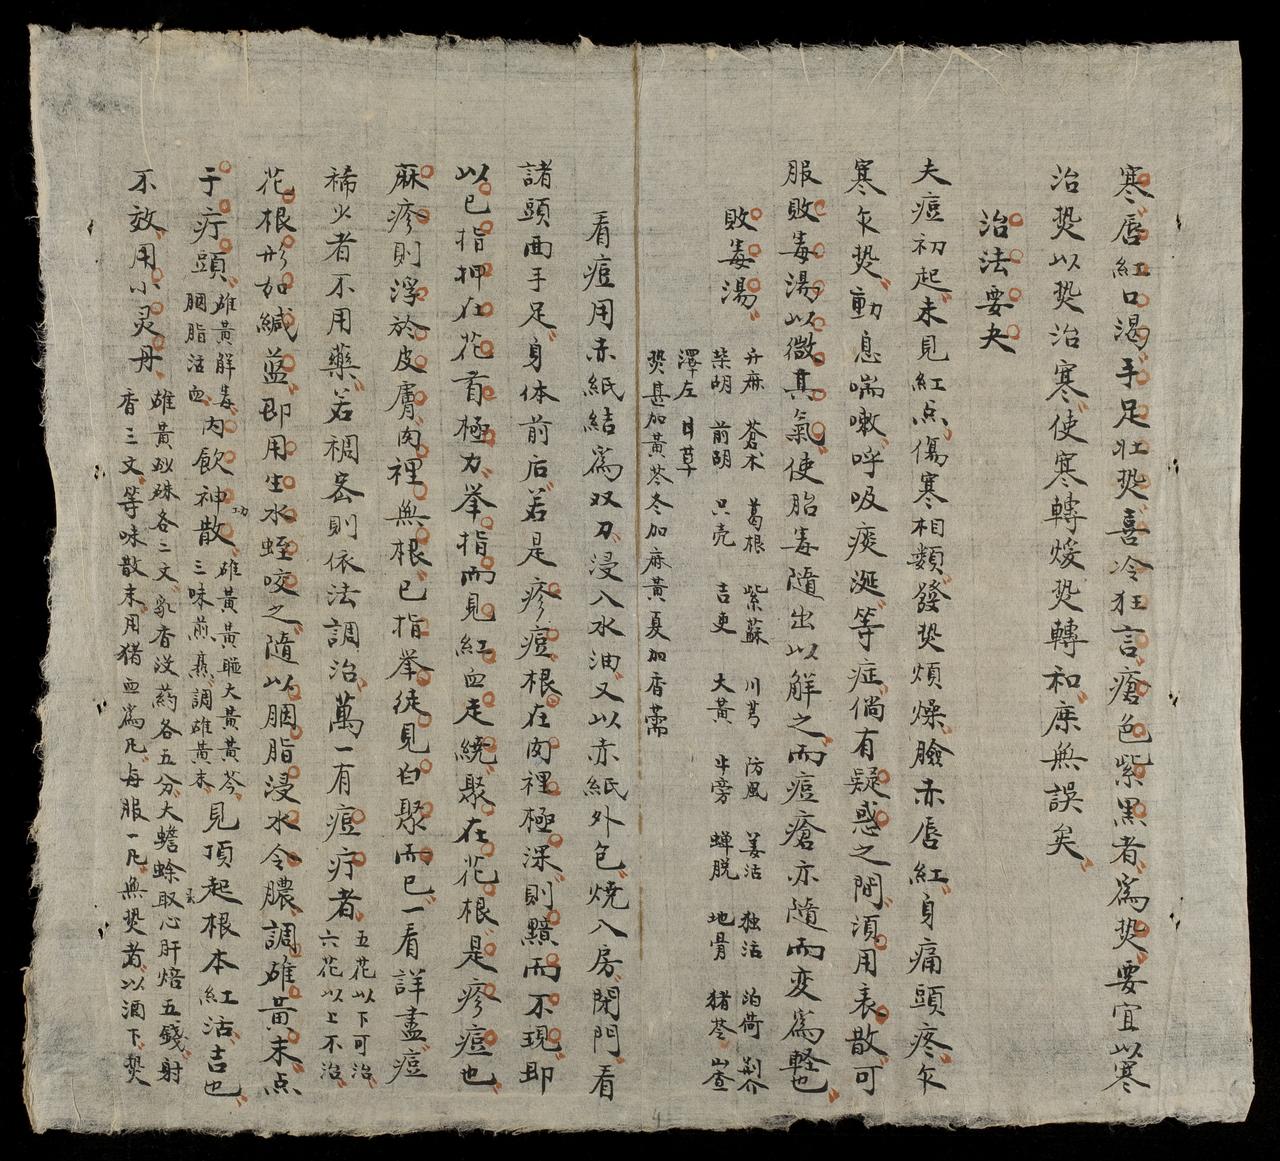 寒唇紅口渴手足壯㷫喜冷狂言瘡色紫黑者爲㷫要宜以寒
治㷫以㷫治寒使寒轉煖㷫轉和庶無誤矣
治法要夬
夫痘初起未見紅点傷寒相類發㷫煩燥臉赤唇紅身痛頭疼乍
寒乍㷫動息喘嗽呼吸痰涎等症倘有疑惑之間須用表散可
服敗毒湯以微其氣使胎毒隨出以解之而痘瘡亦隨而変爲軽也
敗毒湯
升麻 蒼术 葛根 紫蘇 川芎 防風 姜活 独活 泊荷 荆介
柴胡 前胡 只壳 吉更 大黃 牛旁 蝉脱 地骨 猪苓 山查
澤左 甘草
㷫甚加黃芩冬加麻黃夏加香薷
看痘用赤紙結爲双刀浸入水油又以赤紙外包燒入房閉門看
諸頭面手足身体前后若是疹痘根在肉裡極深則黯而不現即
以已指押在花首極力举指而見紅血走繞聚在花根是疹痘也
麻疹則浮於皮膚肉裡無根已指举徒見白聚而已一看詳盡痘
稀少者不用藥若稠密則依法調治萬一有痘疔者
五花以下可治
六花以上不治
花根形如緘藍即用生水蛭咬之隨以胭脂浸水令膿調雄黃末点
于疔頭
雄黃解毒
胭脂活血
内飲神功散
雄黃黃䏚大黃黃芩
三味煎熹調雄黃末
見頂起根本紅活吉也
不效用小灵丹
雄黃砂硃各二文乳香没药各五分大蟾蜍取心肝焙五錢射
香三文等味散末用猪血爲凡每服一凡無㷫者以酒下㷫